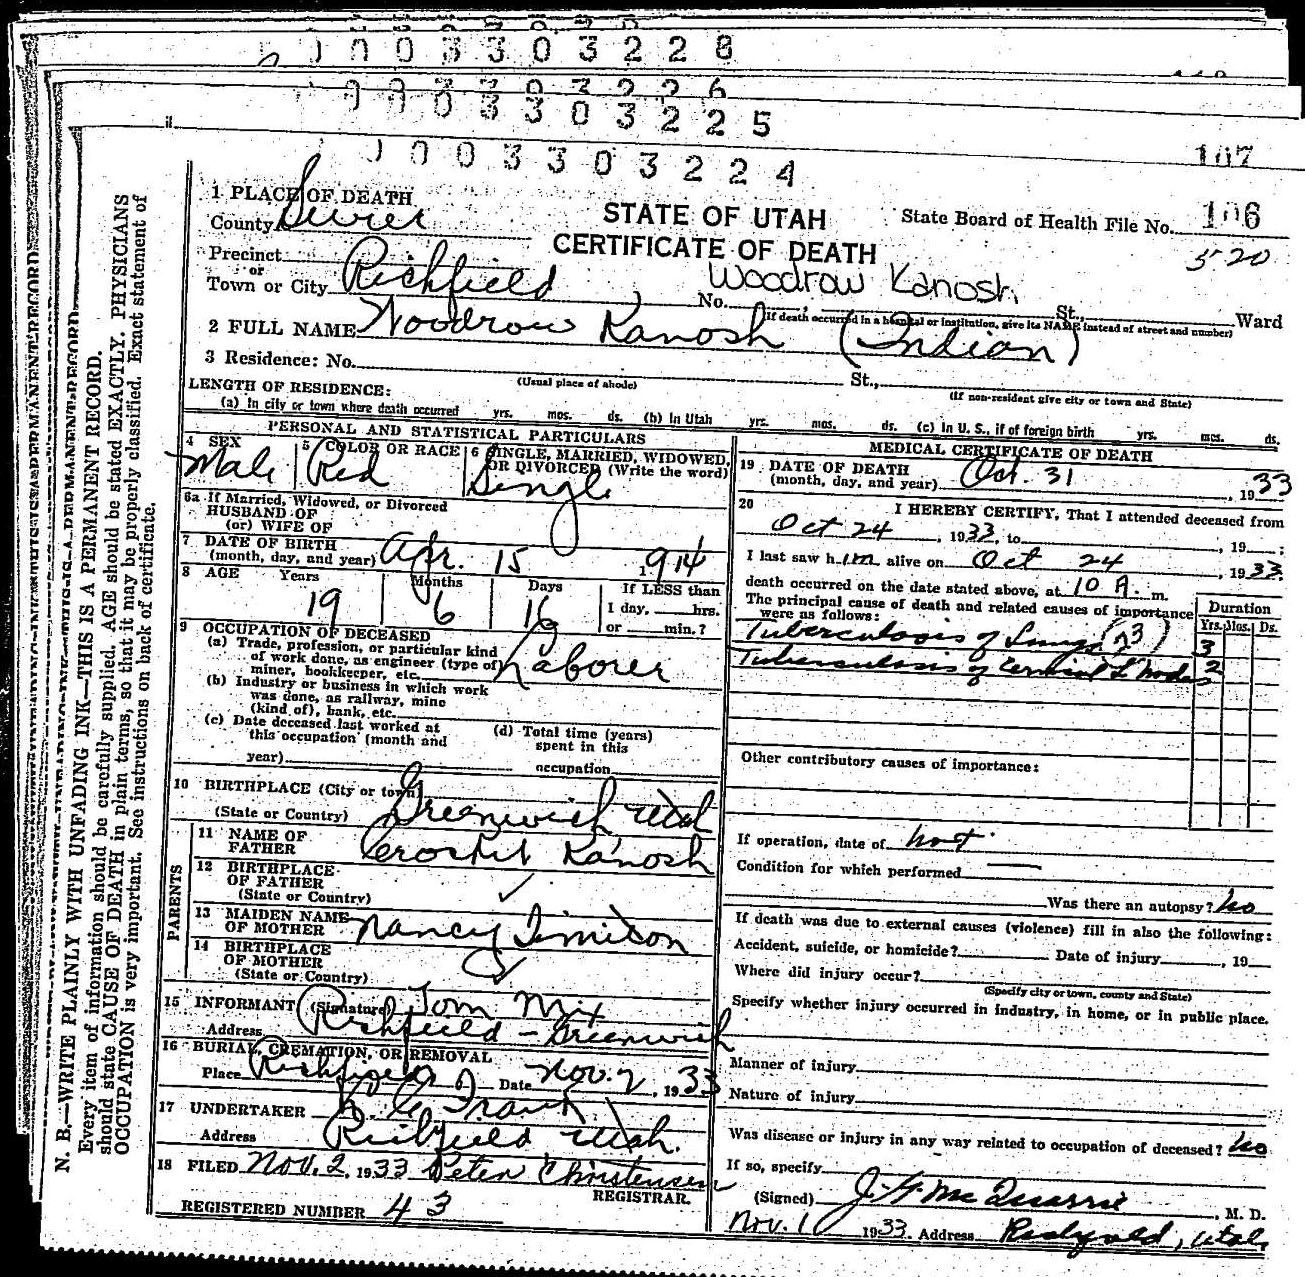 0 0 0 3 3 0 3 2 2 8
0 0 0 3 3 0 3 2 2 6
0 0 0 3 3 0 3 2 2 5
0 0 0 3 3 0 3 2 2 4
107
1 PLACE OF DEATH
County Sevier
STATE OF UTAH
CERTIFICATE OF DEATH
State Board of Health File No. 106
520
Precinct
or
Town or City Richfield
Woodrow Kanosh
No. St., Ward
(If death occurred in a hospital or institution, give its NAME instead of street and number)
2 FULL NAME Woodrow Kanosh (Indian)
3 Residence: No. St.,
(Usual place of abode) (If non-resident give city or town and State)
LENGTH OF RESIDENCE:
(a) In city or town where death occurred yrs. mos. ds. (b) In Utah yrs. mos. ds. (c) In U. S., if of foreign birth yrs. mos. ds.
PERSONAL AND STATISTICAL PARTICULARS
4 SEX Male
5 COLOR OR RACE Red
6 SINGLE, MARRIED, WIDOWED, OR DIVORCED (Write the word) Single
6a If Married, Widowed, or Divorced
HUSBAND OF
(or) WIFE OF
7 DATE OF BIRTH
(month, day, and year) Apr. 15 1914
8 AGE Years Months Days If LESS than
19 6 16 1 day, hrs.
or min.?
9 OCCUPATION OF DECEASED
(a) Trade, profession, or particular kind
of work done, as engineer (type of)
miner, bookkeeper, etc. Laborer
(b) Industry or business in which work
was done, as railway, mine
(kind of), bank, etc.
(c) Date deceased last worked at
this occupation (month and
year)
(d) Total time (years)
spent in this
occupation
10 BIRTHPLACE (City or town)
(State or Country) Greenwich Utah
PARENTS
11 NAME OF
FATHER Crocket Kanosh
12 BIRTHPLACE
OF FATHER
(State or Country)
13 MAIDEN NAME
OF MOTHER Nancy Timican
14 BIRTHPLACE
OF MOTHER
(State or Country)
15 INFORMANT (Signature) Tom Mix
Address Richfield - Greenwich
16 BURIAL, CREMATION, OR REMOVAL
Place Richfield Date Nov. 2, 1933
17 UNDERTAKER
Address Richfield Utah.
18 FILED Nov. 2, 1933 Peter Christensen
REGISTRAR.
REGISTERED NUMBER 43
MEDICAL CERTIFICATE OF DEATH
19 DATE OF DEATH
(month, day, and year) Oct. 31, 1933
20 I HEREBY CERTIFY, That I attended deceased from
Oct 24, 1933, to , 19 ;
I last saw him alive on Oct 24, 1933.
death occurred on the date stated above, at 10 A. m.
The principal cause of death and related causes of importance
were as follows:
Duration
Yrs. Mos. Ds.
Tuberculosis of Lungs (23) 3
Tuberculosis of Cervical L Nodes 2
Other contributory causes of importance:
If operation, date of not
Condition for which performed
Was there an autopsy? No
If death was due to external causes (violence) fill in also the following:
Accident, suicide, or homicide? Date of injury , 19
Where did injury occur?
(Specify city or town, county and State)
Specify whether injury occurred in industry, in home, or in public place.
Manner of injury
Nature of injury
Was disease or injury in any way related to occupation of deceased? No
If so, specify
(Signed) J. G. McQuarrie, M. D.
Nov. 1 1933. Address Richfield, Utah
N. B.—WRITE PLAINLY WITH UNFADING INK—THIS IS A PERMANENT RECORD.
Every item of information should be carefully supplied. AGE should be stated EXACTLY. PHYSICIANS
should state CAUSE OF DEATH in plain terms, so that it may be properly classified. Exact statement of
OCCUPATION is very important. See instructions on back of certificate.